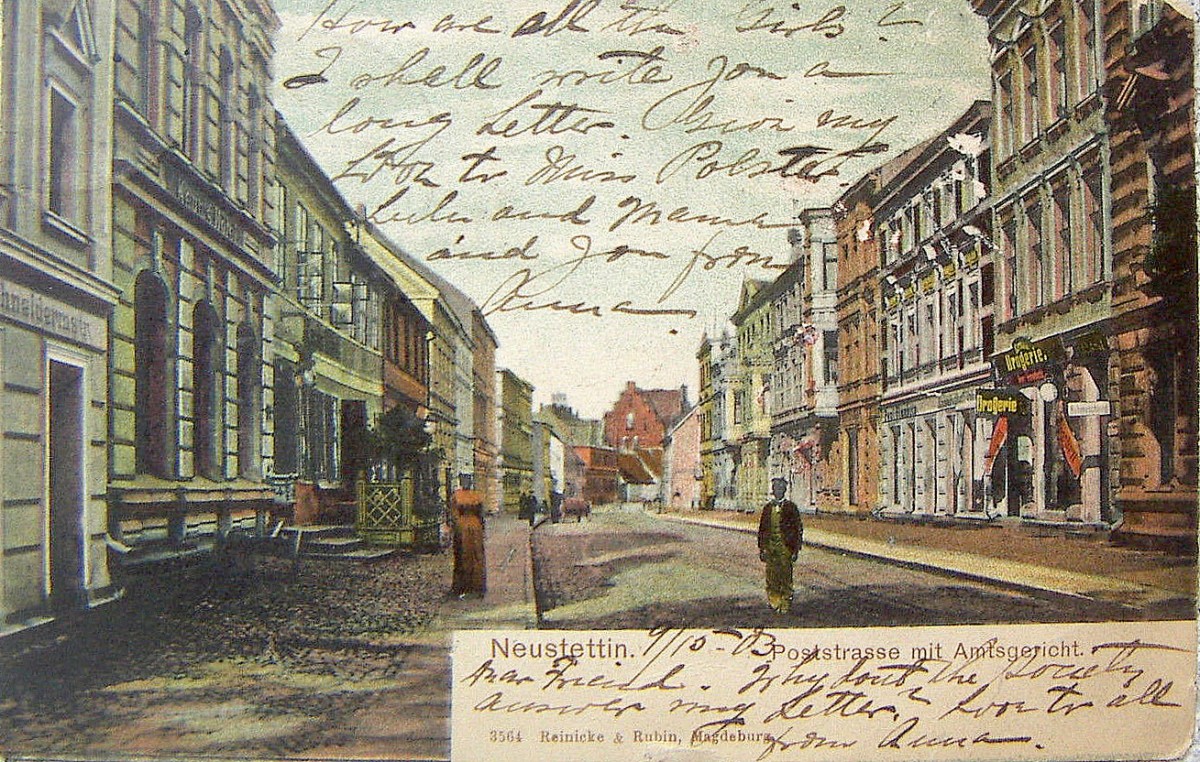 How are all the Girls?
I shall write you a
long Letter. Given my
Love to Miss Polster.
Lulu and Mama
and you from
Anna
Schneidermstr
Drogerie
Drogerie
Neustettin. 9/10-03 Poststrasse mit Amtsgericht.
Dear Friend. Why dont the Society
answer my Letter? Love to all
from Anna.
3564 Reinicke & Rubin, Magdeburg